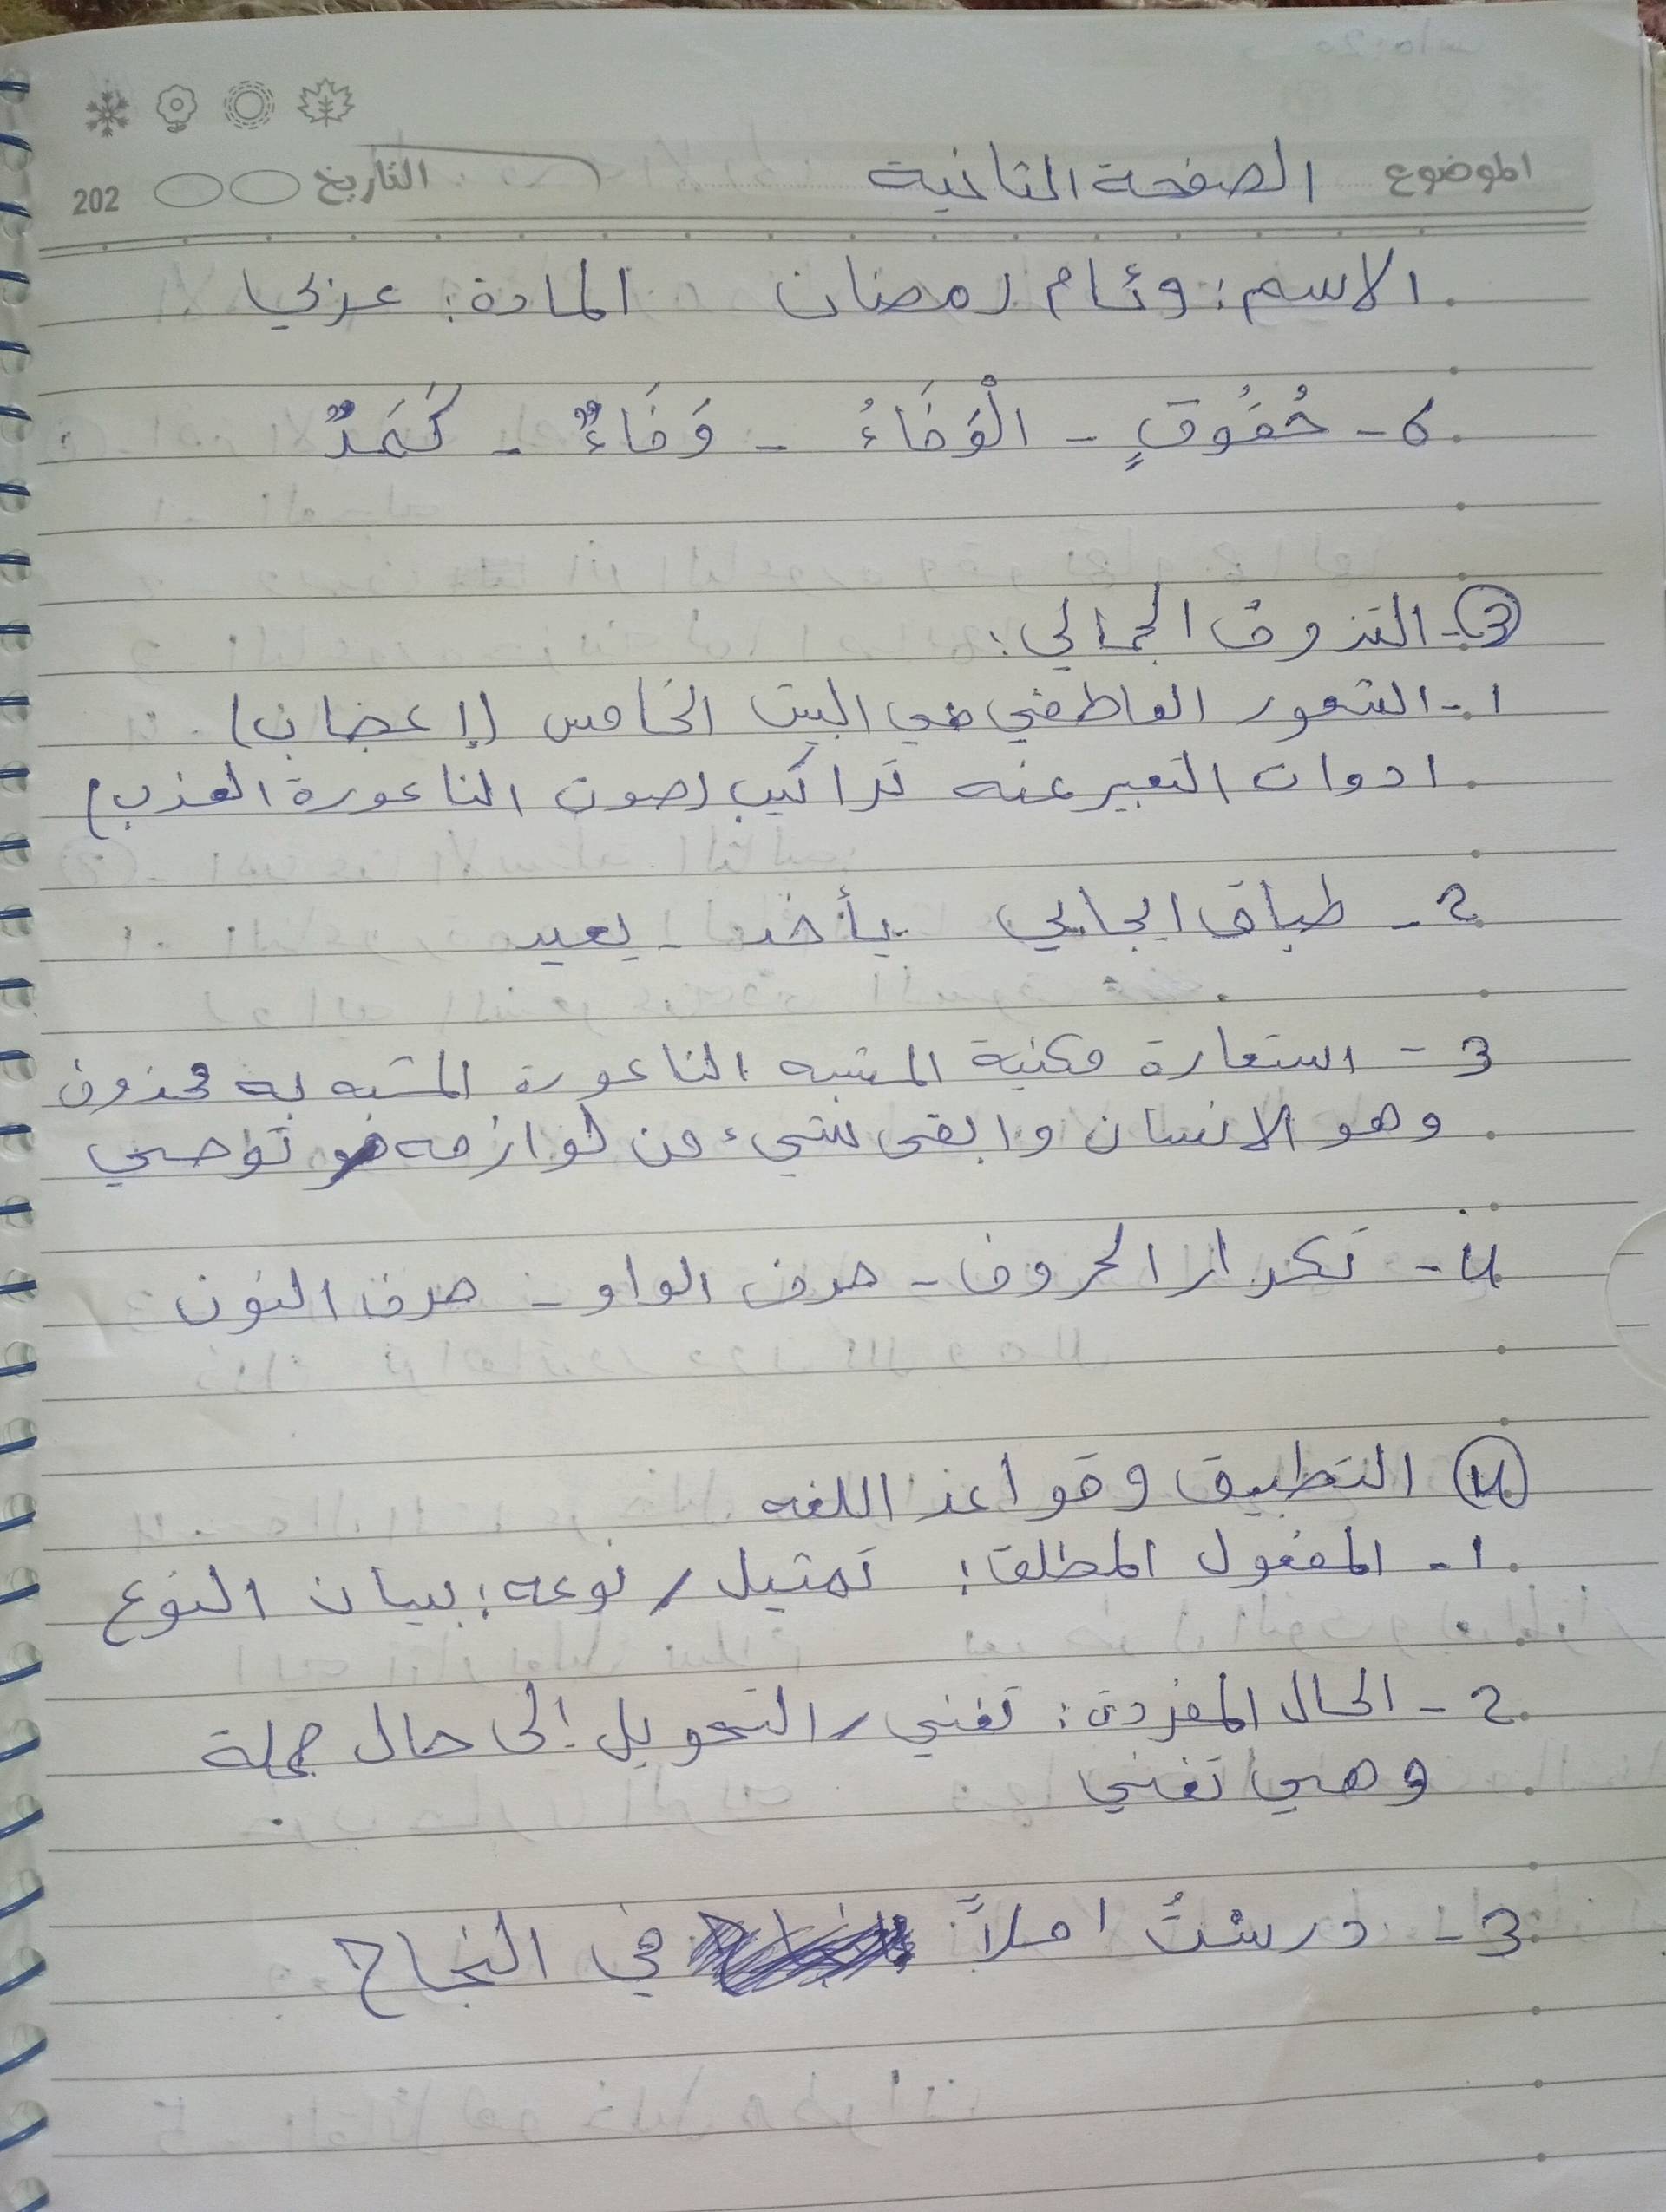 الموضوع الصفحة الثانية التاريخ 202
الاسم: وئام رمضان المادة: عربي
6- حُقُوقٍ - الْوَفَاءُ - وَفَاءٌ - كَمَدٌ
3- التذوق الجمالي:
1- الشعور العاطفي في البيت الخامس (إعجاب)
ادوات التعبير عنه تراكيب (صوت الناعورة العذب)
2- طباق ايجابي يأخذ - يعيد
3- استعارة مكنية المشبه الناعورة المشبه به محذوف
وهو الانسان وابقى شيء من لوازمه هو توصي
4- تكرار الحروف - حرف الواو - حرف النون
4 التطبيق وقواعد اللغه
1- المفعول المطلق: تمثيل / نوعه: بيان النوع
2- الحال المفردة: تغني / التحويل إلى حال جملة
وهي تغني
3- درسْتُ املاً في النجاح